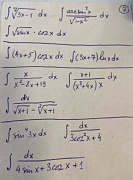 ∫ ∛(3x-1) dx   ∫ arcsin⁴x / √(1-x²) dx
∫ √sinx · cosx dx
∫ (4x+5) cos2x dx   ∫ (3x+7) lnx dx
∫ x / (x²-8x+19) dx   ∫ (x+1) / ((x²+4x)x) dx
∫ dx / (√(x+1) - ∜(x+1))
∫ sin⁴3x dx   ∫ dx / (3cos²x+4)
∫ dx / (4sinx+3cosx+1)